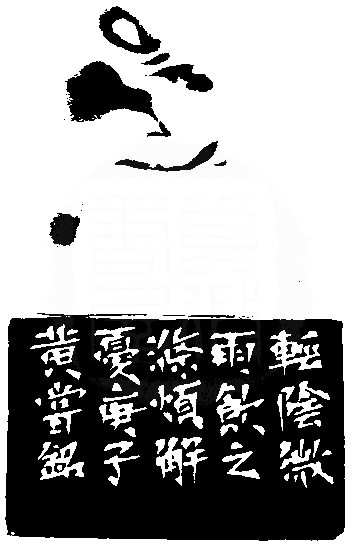 輕陰微
雨飲之
滌煩解
憂庚子
黃嘗銘